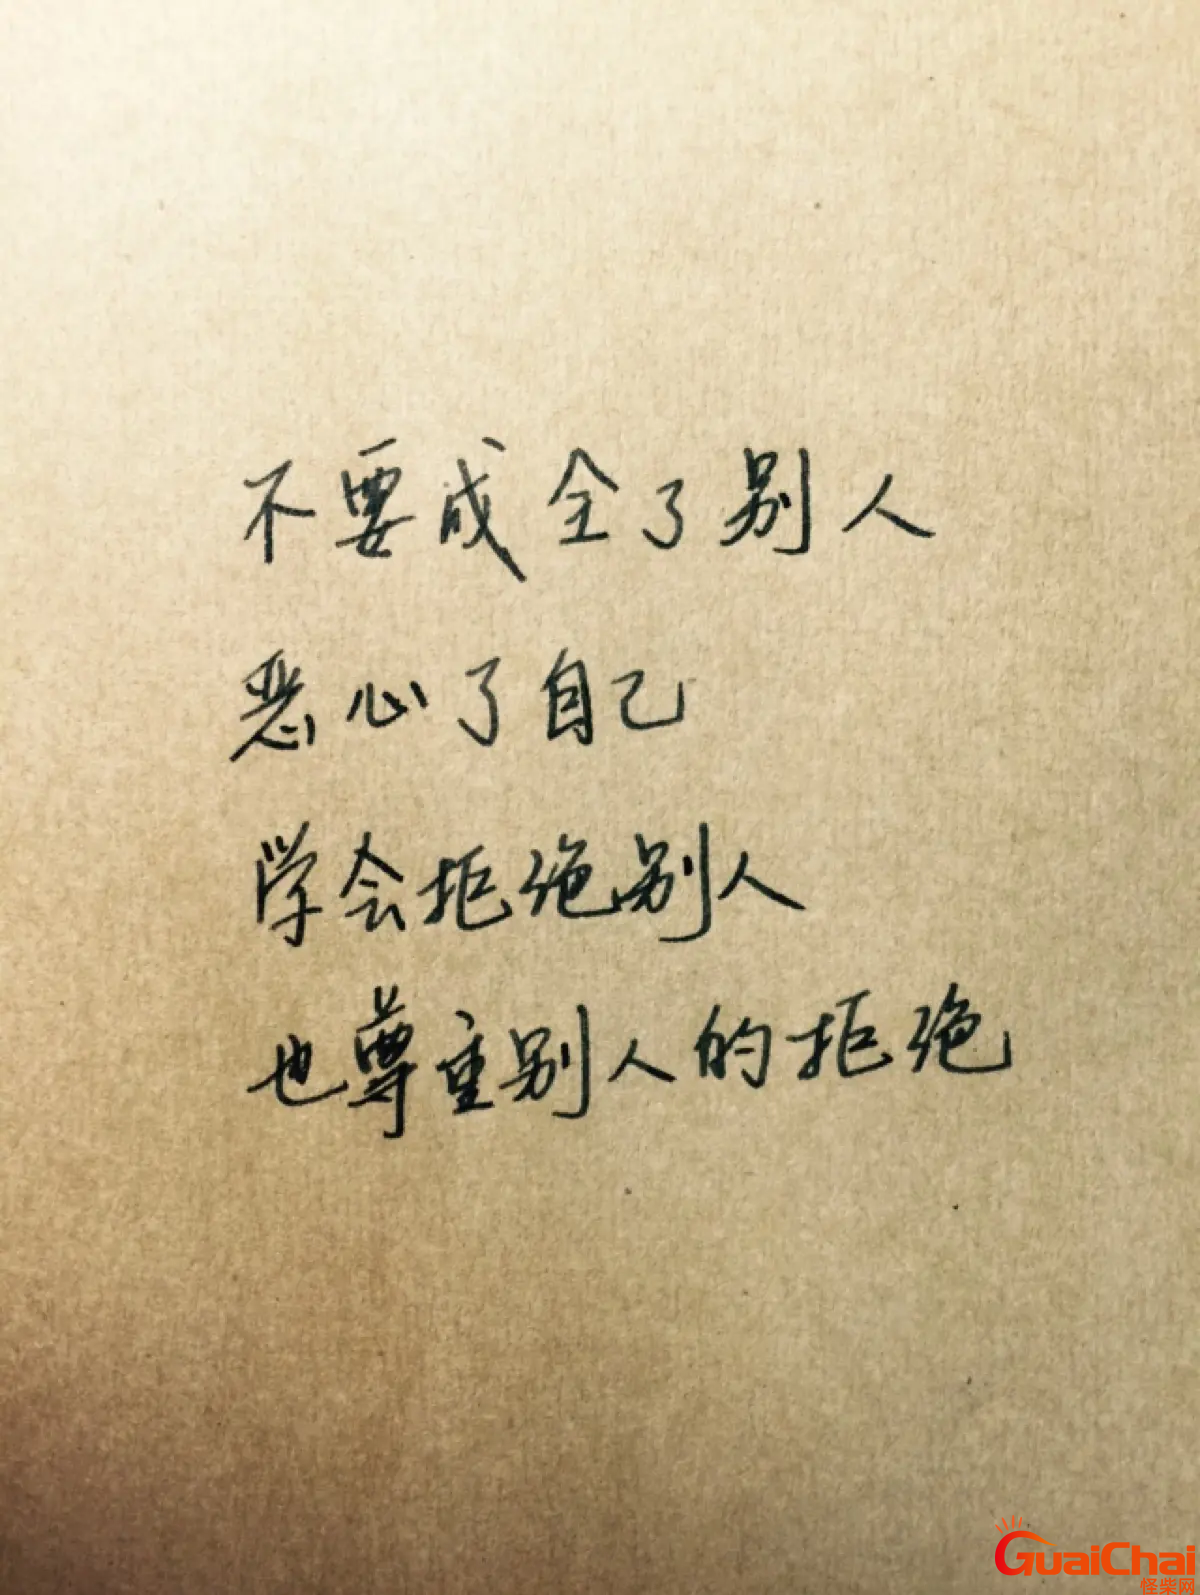 不要成全了别人
恶心了自己
学会拒绝别人
也尊重别人的拒绝
GuaiChai
怪柴网